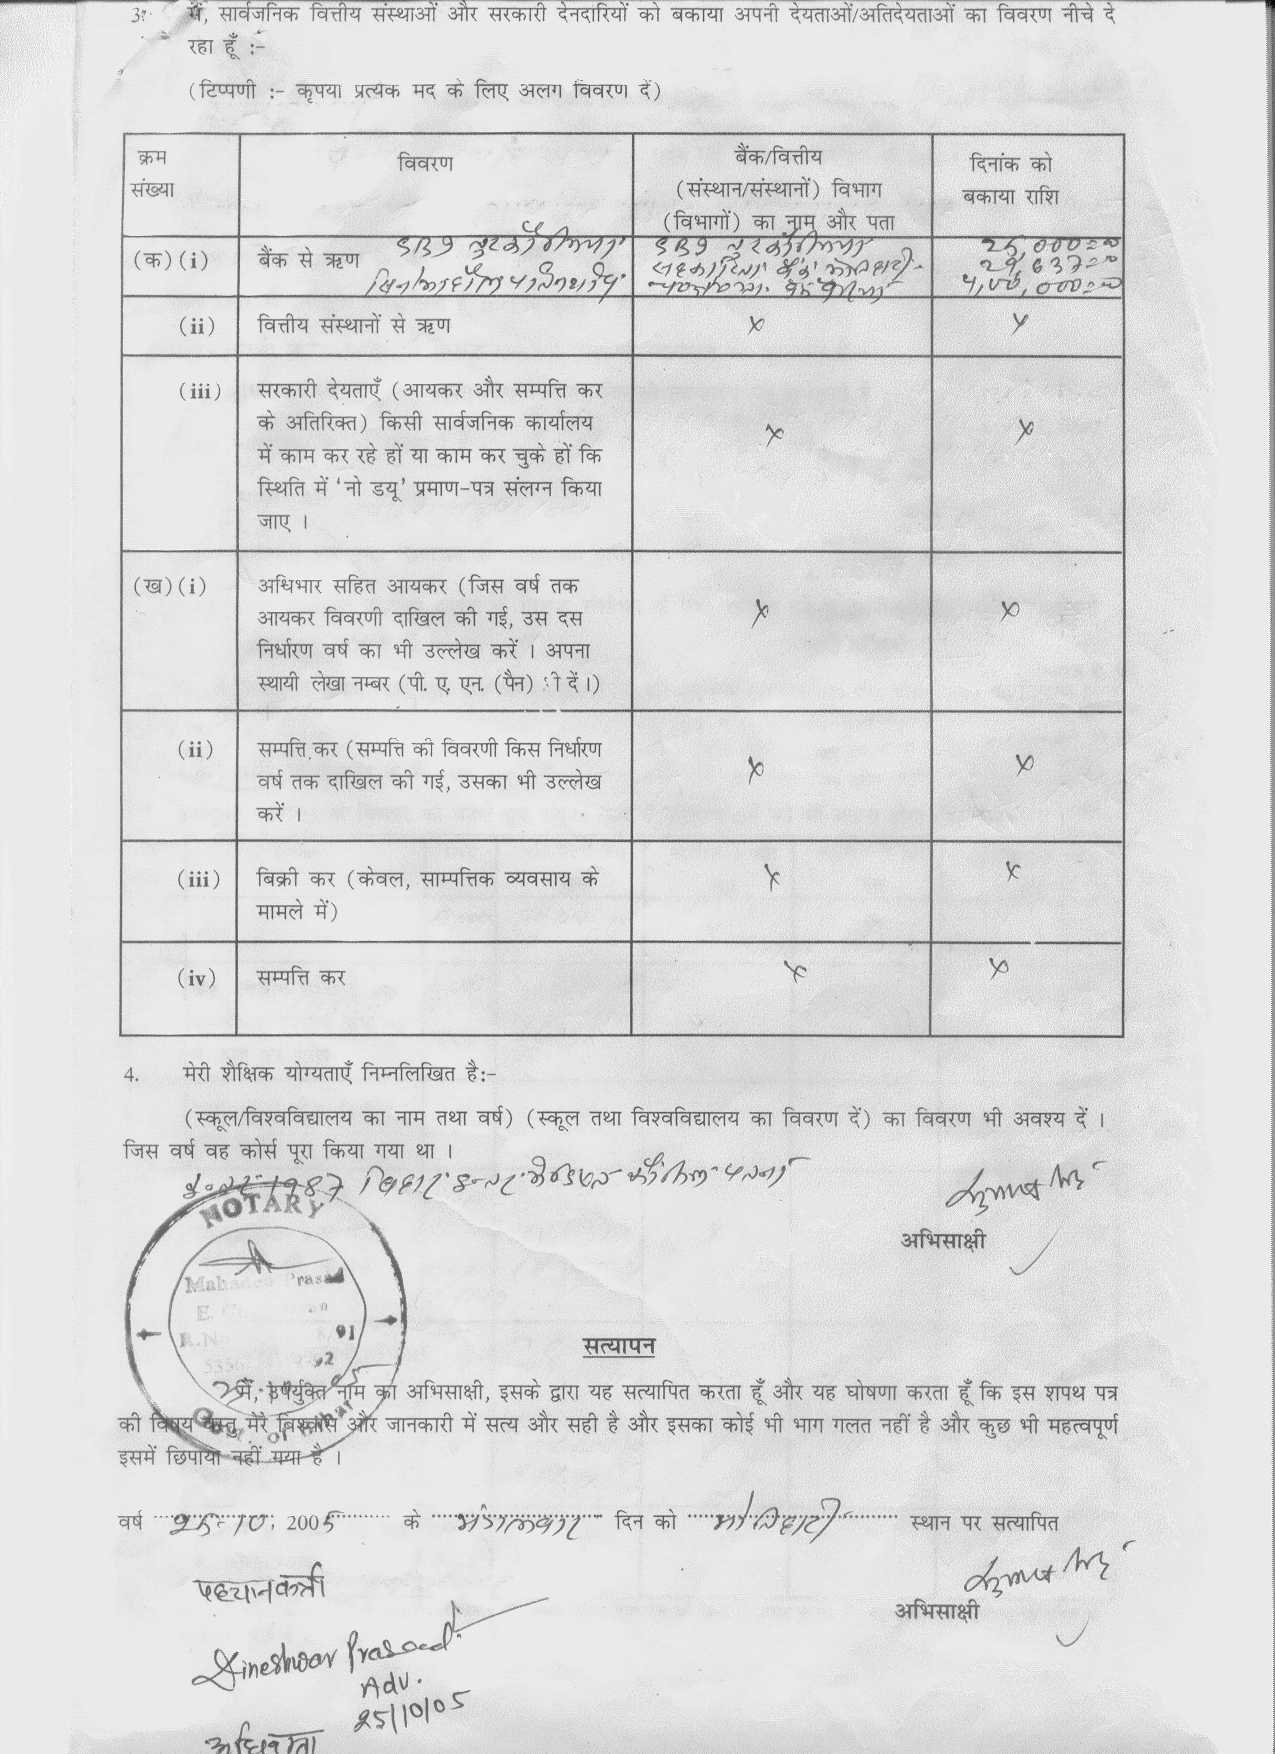 3. मैं, सार्वजनिक वित्तीय संस्थाओं और सरकारी देनदारियों को बकाया अपनी देयताओं/अतिदेयताओं का विवरण नीचे दे
रहा हूँ :-
(टिप्पणी :- कृपया प्रत्येक मद के लिए अलग विवरण दें)
क्रम
संख्या
विवरण
बैंक/वित्तीय
(संस्थान/संस्थानों) विभाग
(विभागों) का नाम और पता
दिनांक को
बकाया राशि
(क)(i) बैंक से ऋण
25,000=00
(ii) वित्तीय संस्थानों से ऋण x x
(iii) सरकारी देयताएँ (आयकर और सम्पत्ति कर
के अतिरिक्त) किसी सार्वजनिक कार्यालय
में काम कर रहे हों या काम कर चुके हों कि x x
स्थिति में 'नो डयू' प्रमाण-पत्र संलग्न किया
जाए ।
(ख)(i) अधिभार सहित आयकर (जिस वर्ष तक
आयकर विवरणी दाखिल की गई, उस दस x x
निर्धारण वर्ष का भी उल्लेख करें । अपना
स्थायी लेखा नम्बर (पी. ए. एन. (पैन) दें।)
(ii) सम्पत्ति कर (सम्पत्ति की विवरणी किस निर्धारण x x
वर्ष तक दाखिल की गई, उसका भी उल्लेख
करें ।
(iii) बिक्री कर (केवल, साम्पत्तिक व्यवसाय के x x
मामले में)
(iv) सम्पत्ति कर x x
4. मेरी शैक्षिक योग्यताएँ निम्नलिखित है:-
(स्कूल/विश्वविद्यालय का नाम तथा वर्ष) (स्कूल तथा विश्वविद्यालय का विवरण दें) का विवरण भी अवश्य दें ।
जिस वर्ष वह कोर्स पूरा किया गया था ।
1987 बिहार इन्टर कौंसिल पटना
अभिसाक्षी
NOTARY
Mahadeo Prasad
सत्यापन
मैं, उपर्युक्त नाम का अभिसाक्षी, इसके द्वारा यह सत्यापित करता हूँ और यह घोषणा करता हूँ कि इस शपथ पत्र
की विषय वस्तु मेरे विश्वास और जानकारी में सत्य और सही है और इसका कोई भी भाग गलत नहीं है और कुछ भी महत्वपूर्ण
इसमें छिपाया नहीं गया है ।
वर्ष 25-10, 2005 के मंगलवार दिन को मोतिहारी स्थान पर सत्यापित
अभिसाक्षी
पहचानकर्ता
Dineshwar Prasad
Adv.
25/10/05
अधिवक्ता